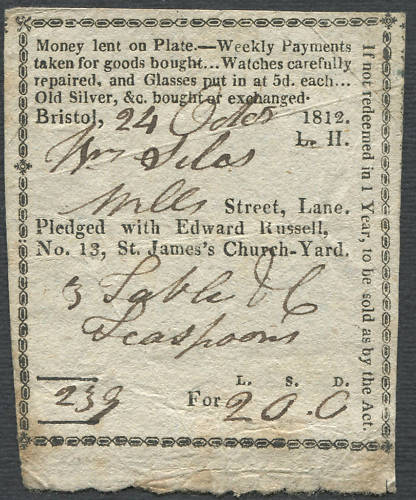 Money lent on Plate.—Weekly Payments
taken for goods bought...Watches carefully
repaired, and Glasses put in at 5d. each...
Old Silver, &c. bought or exchanged.
Bristol, 24 Octor 1812.
L. H.
Wm Silas
Mills Street, Lane.
Pledged with Edward Russell,
No. 13, St. James's Church-Yard.
3 Table &
Teaspoons
L. S. D.
239 For 2 0. 0
If not redeemed in 1 Year, to be sold as by the Act.